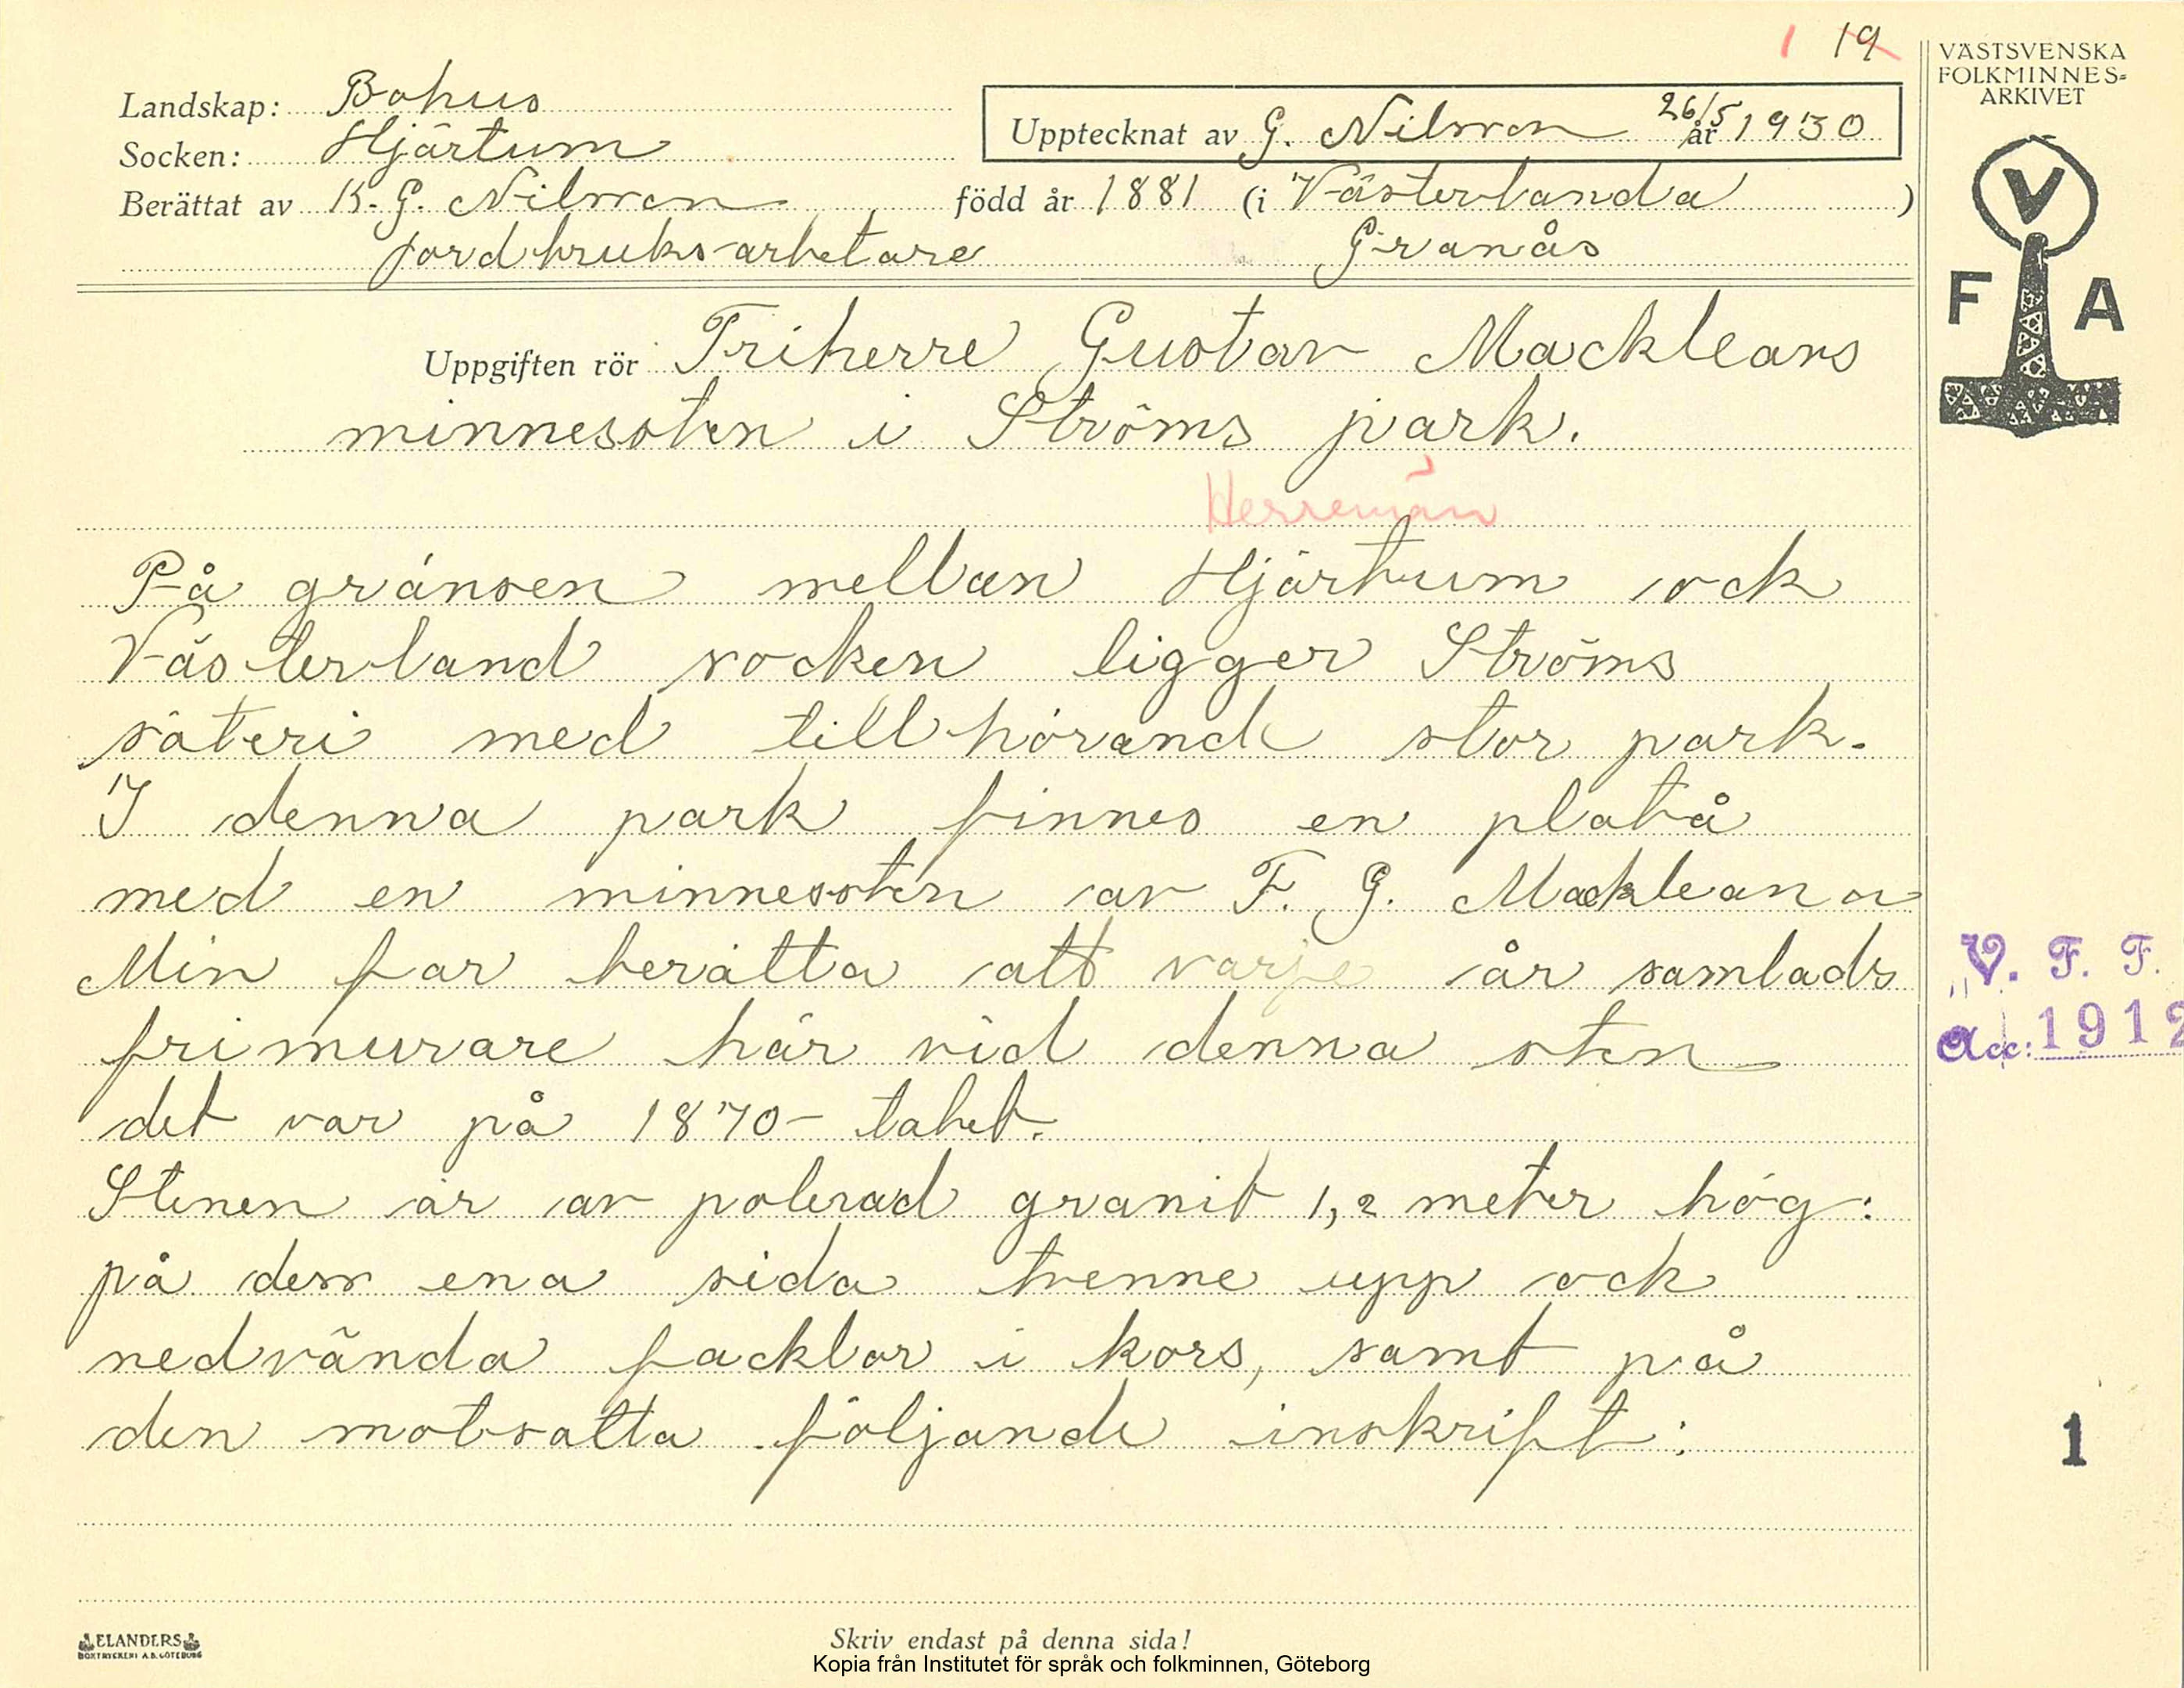 1 19
VÄSTSVENSKA
FOLKMINNES=
ARKIVET
Landskap: Bohus
Socken: Hjärtum
Upptecknat av G. Nilsson 26/5 år 1930
Berättat av B. G. Nilsson född år 1881 (i Västerlanda )
jordbruks-arbetare Granås
V
F A
Uppgiften rör Friherre Gustav Mackleans
minnessten i Ströms park.
Herremän
På gränsen mellan Hjärtum ock
Västerland socken ligger Ströms
säteri med tillhörande stor park.
I denna park finnes en platå
med en minnessten av F. G. Macklean
Min far berätta att varje år samlads
frimurare här vid denna sten
det var på 1870-talet.
Stenen är av polerad granit 1,2 meter hög:
på dess ena sida trenne upp ock
nedvända facklor i kors, samt på
den motsatta följande inskrift:
V. F. F.
Acc: 1912
1
ELANDERS
BOKTRYCKERI A.B. GÖTEBORG
Skriv endast på denna sida!
Kopia från Institutet för språk och folkminnen, Göteborg